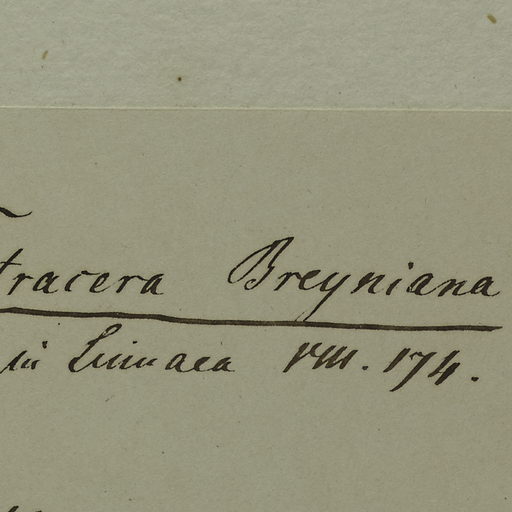 Tetracera Breyniana
in Linnaea VIII. 174.